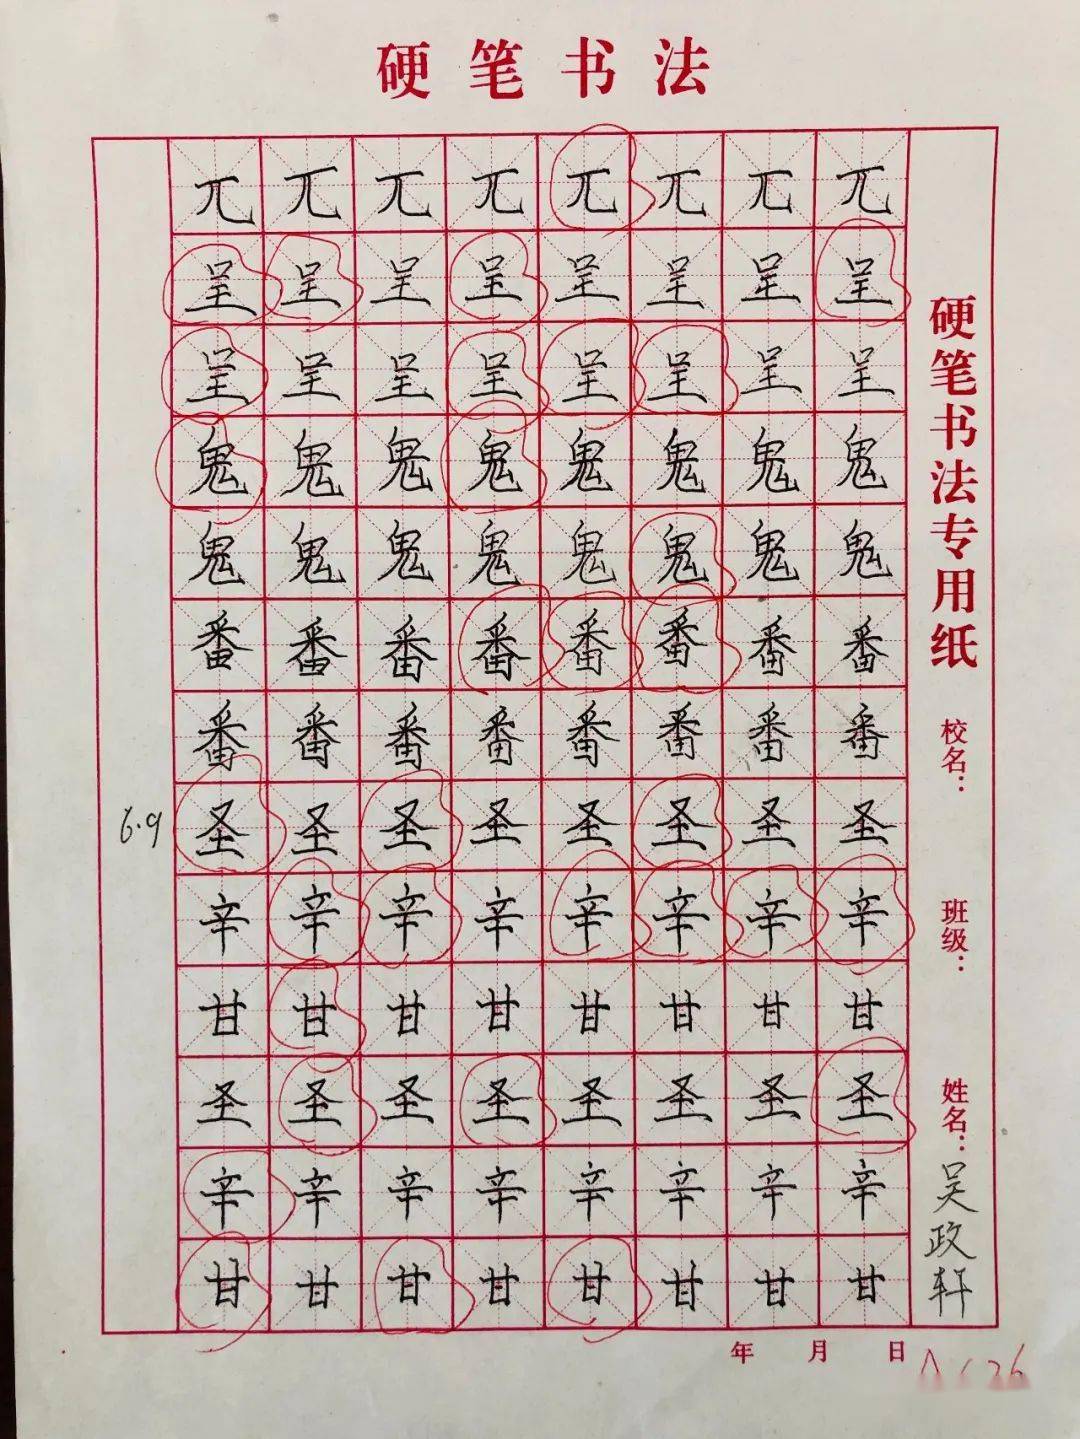 硬笔书法
兀兀兀兀兀兀兀兀
呈呈呈呈呈呈呈呈
呈呈呈呈呈呈呈呈
鬼鬼鬼鬼鬼鬼鬼鬼
鬼鬼鬼鬼鬼鬼鬼鬼
番番番番番番番番
番番番番番番番番
6.9
圣圣圣圣圣圣圣圣
辛辛辛辛辛辛辛辛
甘甘甘甘甘甘甘甘
圣圣圣圣圣圣圣圣
辛辛辛辛辛辛辛辛
甘甘甘甘甘甘甘甘
硬笔书法专用纸
校名：
班级：
姓名：吴政轩
年 月 日